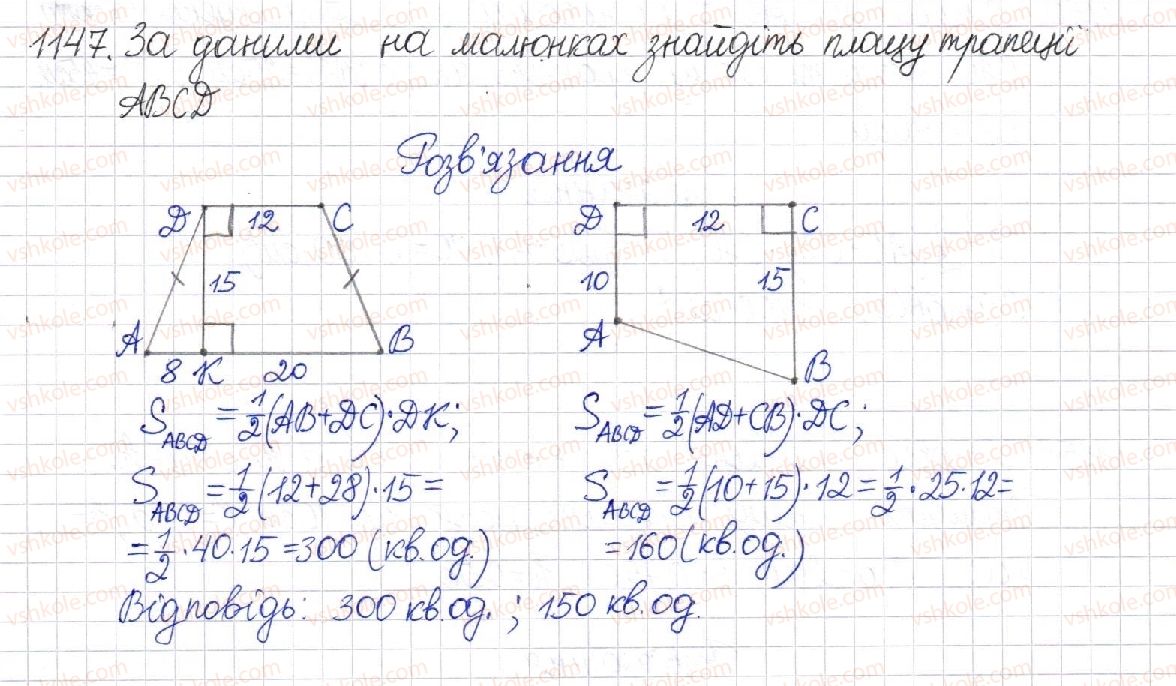 1147. За даними на малюнках знайдіть площу трапеції
ABCD
Розв'язання
D 12 C
15
A 8 K 20 B
D 12 C
10 15
A
B
S_ABCD = 1/2 (AB+DC)·DK;
S_ABCD = 1/2 (12+28)·15 =
= 1/2 · 40·15 = 300 (кв.од.)
S_ABCD = 1/2 (AD+CB)·DC;
S_ABCD = 1/2 (10+15)·12 = 1/2 · 25·12 =
= 160 (кв.од.)
Відповідь: 300 кв.од.; 150 кв.од.
vshkole.com